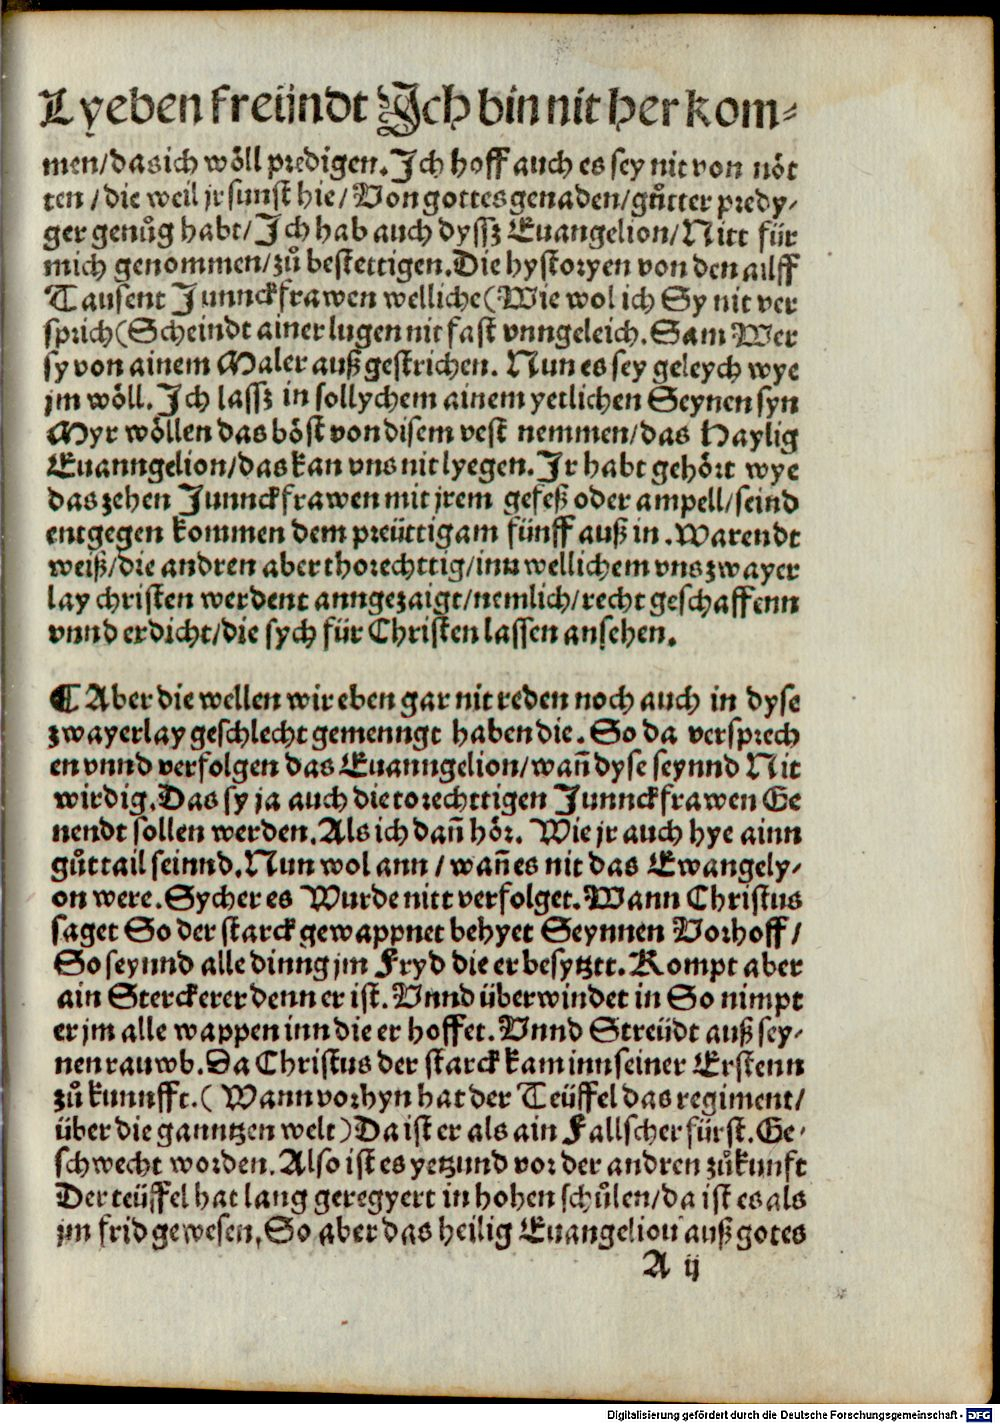 Lyeben freündt Ich bin nit her kom⸗
men/das ich wöll predigen. Ich hoff auch es sey nit von nöt
ten / die weil jr sunst hie / Von gottes genaden/gůtter predy⸗
ger genůg habt/ Ich hab auch dyssz Euangelion/ Nitt für
mich genommen/zů bestettigen. Die hystoryen von den ailff
Tausent Junnckfrawen welliche (Wie wol ich Sy nit ver
sprich (Scheindt ainer lugen nit fast vnngeleich. Sam Wer
sy von ainem Maler außgestrichen. Nun es sey geleych wye
jm wöll. Ich lassz in sollychem ainem yetlichen Seynen syn
Myr wöllen das böst von disem vest nemmen/das Haylig
Euanngelion/das kan vns nit lyegen. Ir habt gehört wye
das zehen Junnckfrawen mit jrem gefeß oder ampell/seind
entgegen kommen dem preüttigam fünff auß in. Warendt
weiß/die andren aber thorechttig/inn wellichem vns zwayer
lay christen werdent anngezaigt/nemlich/recht geschaffenn
vnnd erdicht/die sych für Christen lassen ansehen.
¶ Aber die wellen wir eben gar nit reden noch auch in dyse
zwayerlay geschlecht gemenngt haben die. So da versprech
en vnnd verfolgen das Euanngelion/wañ dyse seynnd Nit
wirdig. Das sy ja auch die torechttigen Junnckfrawen Ge
nendt sollen werden. Als ich dañ hör. Wie jr auch hye ainn
gůttail seinnd. Nun wol ann / wañ es nit das Ewangely⸗
on were. Sycher es Wurde nitt verfolget. Wann Christus
saget So der starck gewappnet behyet Seynnen Vorhoff /
So seynnd alle dinng jm Fryd die er besytztt. Kompt aber
ain Sterckerer denn er ist. Vnnd überwindet in So nimpt
er jm alle wappen inn die er hoffet. Vnnd Streüdt auß sey⸗
nen rauwb. Da Christus der starck kam inn seiner Erstenn
zů kunnfft. ( Wann vorhyn hat der Teüffel das regiment/
über die ganntzen welt ) Da ist er als ain Fallscher fürst. Ge⸗
schwecht worden. Also ist es yetzund vor der andren zůkunft
Der teüffel hat lang geregyert in hohen schůlen/da ist es als
jm frid gewesen. So aber das heilig Euangelion auß gotes
A ij
Digitalisierung gefördert durch die Deutsche Forschungsgemeinschaft - DFG